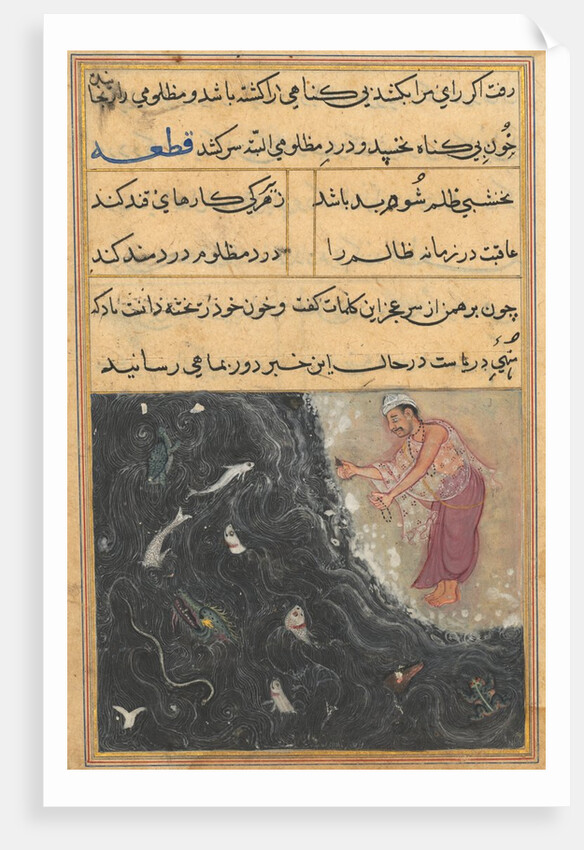 رفت اکر رای مرا بکشد بی کناهی را کشته باشد و مظلومی را رنجانیده
خون بی کناه نخسپد و درد مظلومی البته سر کشد قطعه
نخشبی ظلم شوم بد باشد زهر کی کارهای قند کند
عاقبت در زمانه ظالم را درد مظلوم دردمند کند
چون برهمن از سر عجز این کلمات کفت و خون خود ریخته دانست باد که
منهی دریاست در حال این خبر دور بماهی رسانید